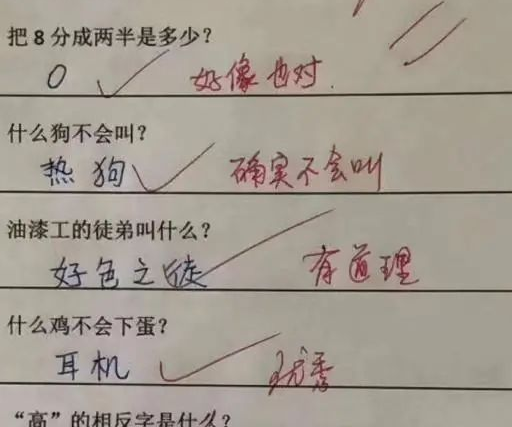 把 8 分成两半是多少？
0 好像也对.
什么狗不会叫？
热狗 确实不会叫
油漆工的徒弟叫什么？
好色之徒 有道理
什么鸡不会下蛋？
耳机 优秀
“高”的相反字是什么？